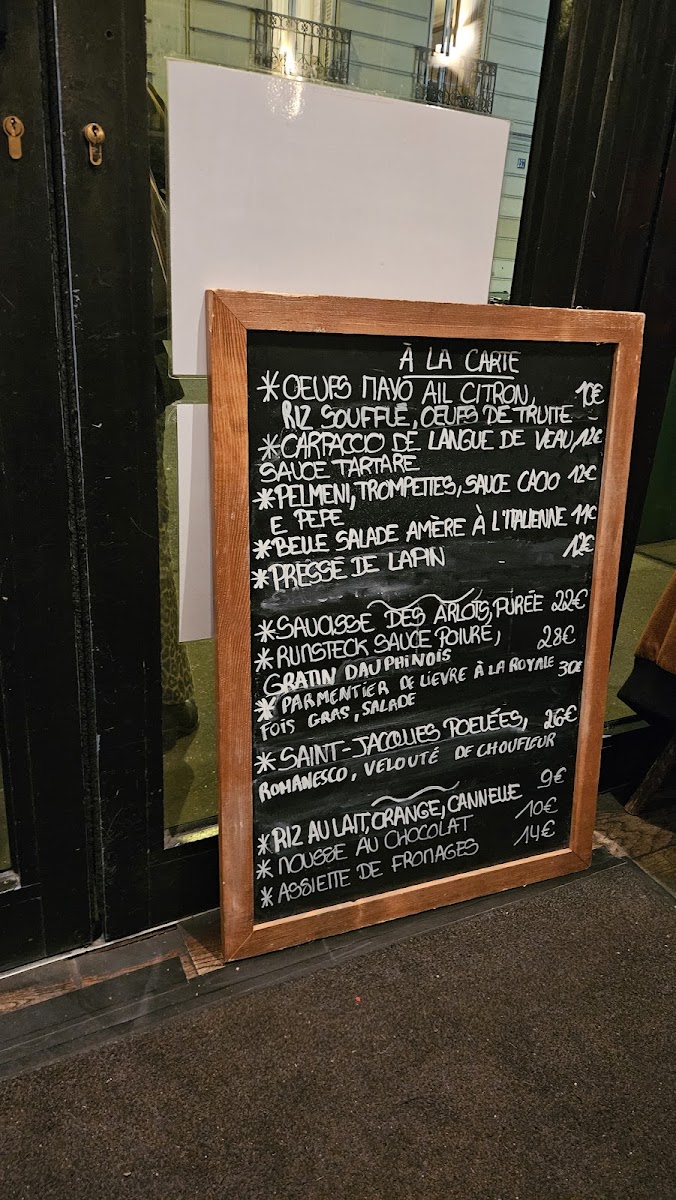 À LA CARTE
* OEUFS MAYO AIL CITRON, 10€
RIZ SOUFFLÉ, OEUFS DE TRUITE
* CARPACCIO DE LANGUE DE VEAU, 12€
SAUCE TARTARE
* PELMENI, TROMPETTES, SAUCE CACIO 12€
E PEPE
* BELLE SALADE AMÈRE À L'ITALIENNE 11€
* PRESSE DE LAPIN 12€
* SAUCISSE DES ARLOTS, PURÉE 22€
* RUMSTECK SAUCE POIVRE, 28€
GRATIN DAUPHINOIS
* PARMENTIER DE LIEVRE À LA ROYALE 30€
FOIS GRAS, SALADE
* SAINT-JACQUES POELÉES, 26€
ROMANESCO, VELOUTÉ DE CHOUFLEUR
* RIZ AU LAIT, ORANGE, CANNELLE 9€
* MOUSSE AU CHOCOLAT 10€
* ASSIETTE DE FROMAGES 14€